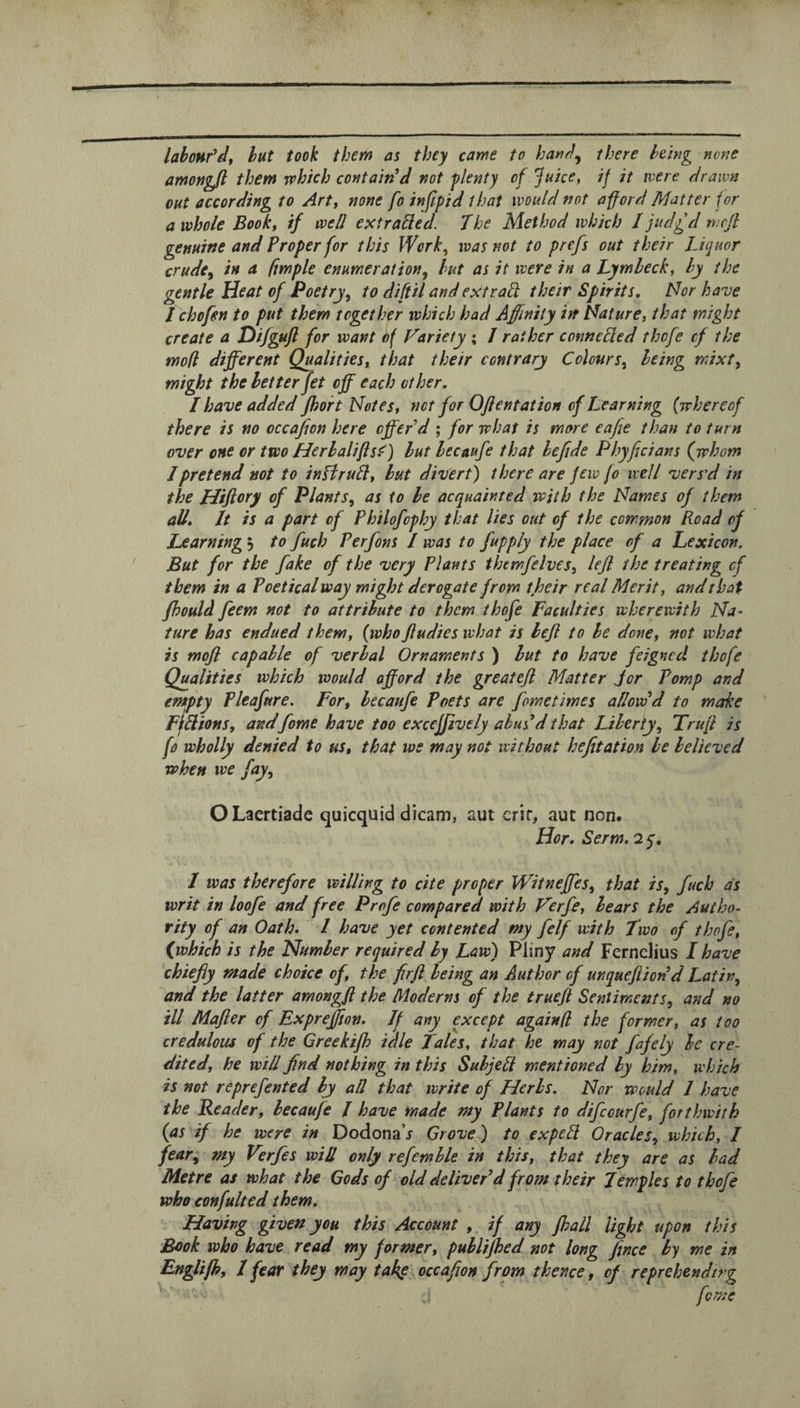 labour'd, but took them as they came to hand, there being none
amongſt them which contain'd not plenty of Juice, if it were drawn
out according to Art, none ſo inſipid that would not afford Matter for
a whole Book, if well extracted. The Method which I judg'd moſt
genuine and Proper for this Work, was not to preſs out their Liquor
crude, in a ſimple enumeration, but as it were in a Lymbeck, by the
gentle Heat of Poetry, to diſtil and extract their Spirits. Nor have
I choſen to put them together which had Affinity in Nature, that might
create a Diſguſt for want of Variety ; I rather connected thoſe of the
moſt different Qualities, that their contrary Colours, being mixt,
might the better ſet off each other.
I have added ſhort Notes, not for Oſtentation of Learning (whereof
there is no occaſion here offer'd ; for what is more eaſie than to turn
over one or two Herbaliſts?) but becauſe that beſide Phyſicians (whom
I pretend not to inſtruct, but divert) there are few ſo well vers'd in
the Hiſtory of Plants, as to be acquainted with the Names of them
all. It is a part of Philoſophy that lies out of the common Road of
Learning ; to ſuch Perſons I was to ſupply the place of a Lexicon.
But for the ſake of the very Plants themſelves, leſt the treating of
them in a Poetical way might derogate from their real Merit, and that
ſhould ſeem not to attribute to them thoſe Faculties wherewith Na-
ture has endued them, (who ſtudies what is beſt to be done, not what
is moſt capable of verbal Ornaments ) but to have feigned thoſe
Qualities which would afford the greateſt Matter for Pomp and
empty Pleaſure. For, becauſe Poets are ſometimes allow'd to make
Fictions, and ſome have too exceſſively abus'd that Liberty, Truſt is
ſo wholly denied to us, that we may not without heſitation be believed
when we ſay,
O Laertiade quicquid dicam, aut erit, aut non.
Hor. Serm. 25.
I was therefore willing to cite proper Witneſſes, that is, ſuch as
writ in looſe and free Proſe compared with Verſe, bears the Autho-
rity of an Oath. I have yet contented my ſelf with Two of thoſe,
(which is the Number required by Law) Pliny and Fernelius I have
chiefly made choice of, the firſt being an Author of unqueſtion'd Latin,
and the latter amongſt the Moderns of the trueſt Sentiments, and no
ill Maſter of Expreſſion. If any except againſt the former, as too
credulous of the Greekiſh idle Tales, that he may not ſafely be cre-
dited, he will find nothing in this Subject mentioned by him, which
is not repreſented by all that write of Herbs. Nor would I have
the Reader, becauſe I have made my Plants to diſcourſe, forthwith
(as if he were in Dodona's Grove ) to expect Oracles, which, I
fear, my Verſes will only reſemble in this, that they are as bad
Metre as what the Gods of old deliver'd from their Temples to thoſe
who conſulted them.
Having given you this Account , if any ſhall light upon this
Book who have read my former, publiſhed not long ſince by me in
Engliſh, I fear they may take occaſion from thence, of reprehending
ſome